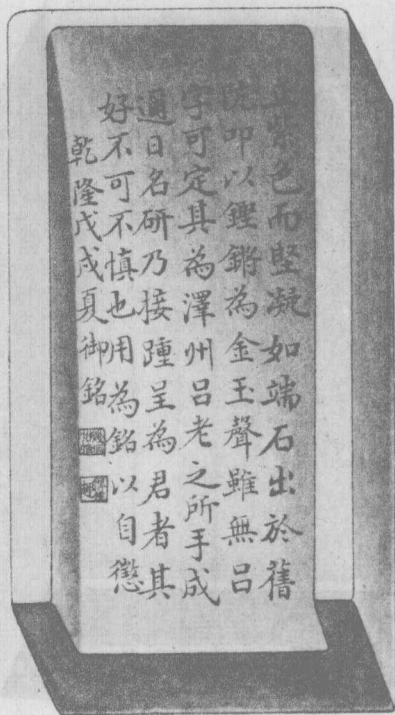 紫色而堅凝如端石出於舊
阬叩以鏗鏘為金玉聲雖無呂
字可定其為澤州呂老之所手成
邇日名研乃接踵呈為君者其
好不可不慎也用為銘以自懲
乾隆戊戌夏御銘